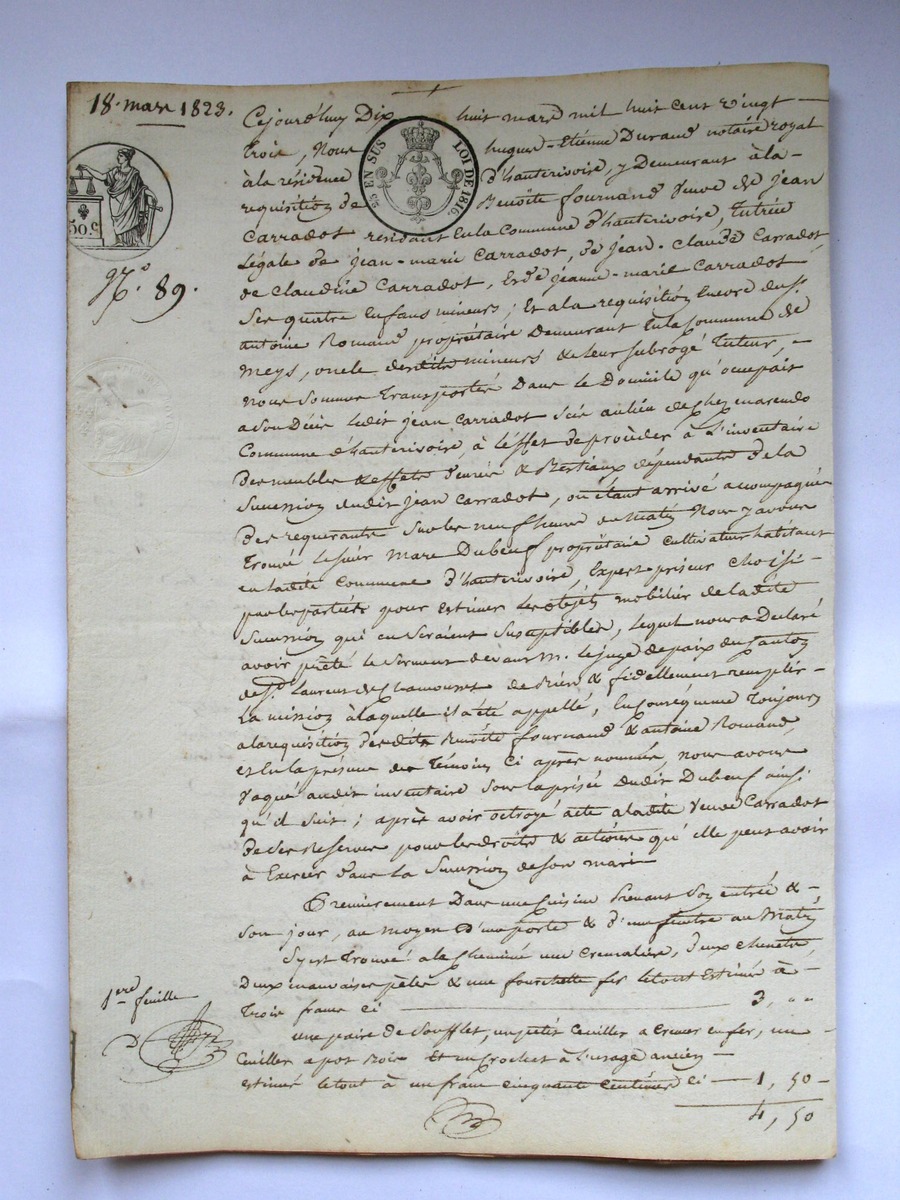 18. mars 1823.
50.c
N.° 89.
25 EN SUS LOI DE 1816.
Cejourd'huy Dix huit mars mil huit cent vingt
trois, Nous hugues-Etienne Durand notaire royal
à la résidence d'hauterivoire, y Demeurant à la
requisition de Benoîte fournand veuve de jean
Carradot residant En la Commune d'hauterivoire, tutrice
légale de jean-marie Carradot, de jean-Claude Carradot
de Claudine Carradot, Et de jeanne-marie Carradot
Ses quatre Enfans mineurs; Et a la requisition Encore du S.r
antoine Romand propriétaire Demeurant En la Commune de
Meys, oncle desdits mineurs & leur subrogé tuteur,
nous sommes transportés Dans le Domicile qu'occupait
a son Décès ledit jean Carradot Scis au lieu de chez
Commune d'hauterivoire, à l'effet de procéder à L'inventaire
Des meubles & effets Denrées & Bestiaux dépendants De la
Succession dudit jean Carradot, où étant arrivé accompagné
Des requerants Sur les neuf heures du Matin Nous y avons
trouvé le sieur Marc Dubeuf propriétaire cultivateur habitant
en ladite Commune d'hauterivoire, Expert priseur choisi
par les parties pour Estimer les objets mobilier de ladite
Succession qui en Seraient Susceptibles, lequel nous a Declaré
avoir prêté le Serment devant M. le juge de paix du Canton
de S.t Laurent de Chamousset de Bien & fidellement remplir
La mission à laquelle il a été appellé, En conséquence toujours
a la requisition desdits Benoîte fournand & antoine Romand,
et En la présence des témoins Ci après nommés, nous avons
Vaqué audit inventaire Sous la prisée dudit Dubeuf ainsi
qu'il Suit; après avoir octroyé acte a ladite veuve Carradot
De Ses Reserves pour les droits & actions qu'elle peut avoir
à Exercer dans La Succession de son mari
Premierement Dans une Cuisine Prenant Son entrée &
Son jour, au moyen d'une porte & d'une fenêtre au Matin
S'y est trouvé a la Cheminée une Cremaliere, Deux chenets,
Deux mauvaises pèles & une fourchette fer le tout Estimé à
trois francs ci 3, " "
une paire de Soufflet, un petit Cuiller a en fer, un
Cuiller a pot Bois Et un Crochet à l'usage ancien
estimés le tout à un franc cinquante centimes Ci 1, 50
4, 50
1.ere feuille
D